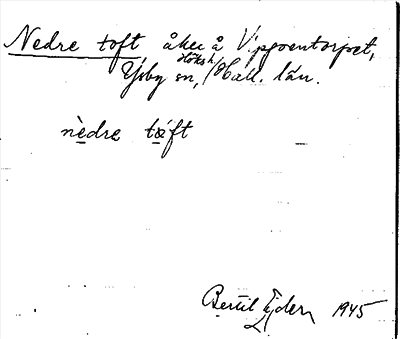 Nedre toft, åker å Vippentorpet,
Ysby sn, Höks h/ Hall. län.
nèdre tɷ́ft
Bertil Ejder 1945